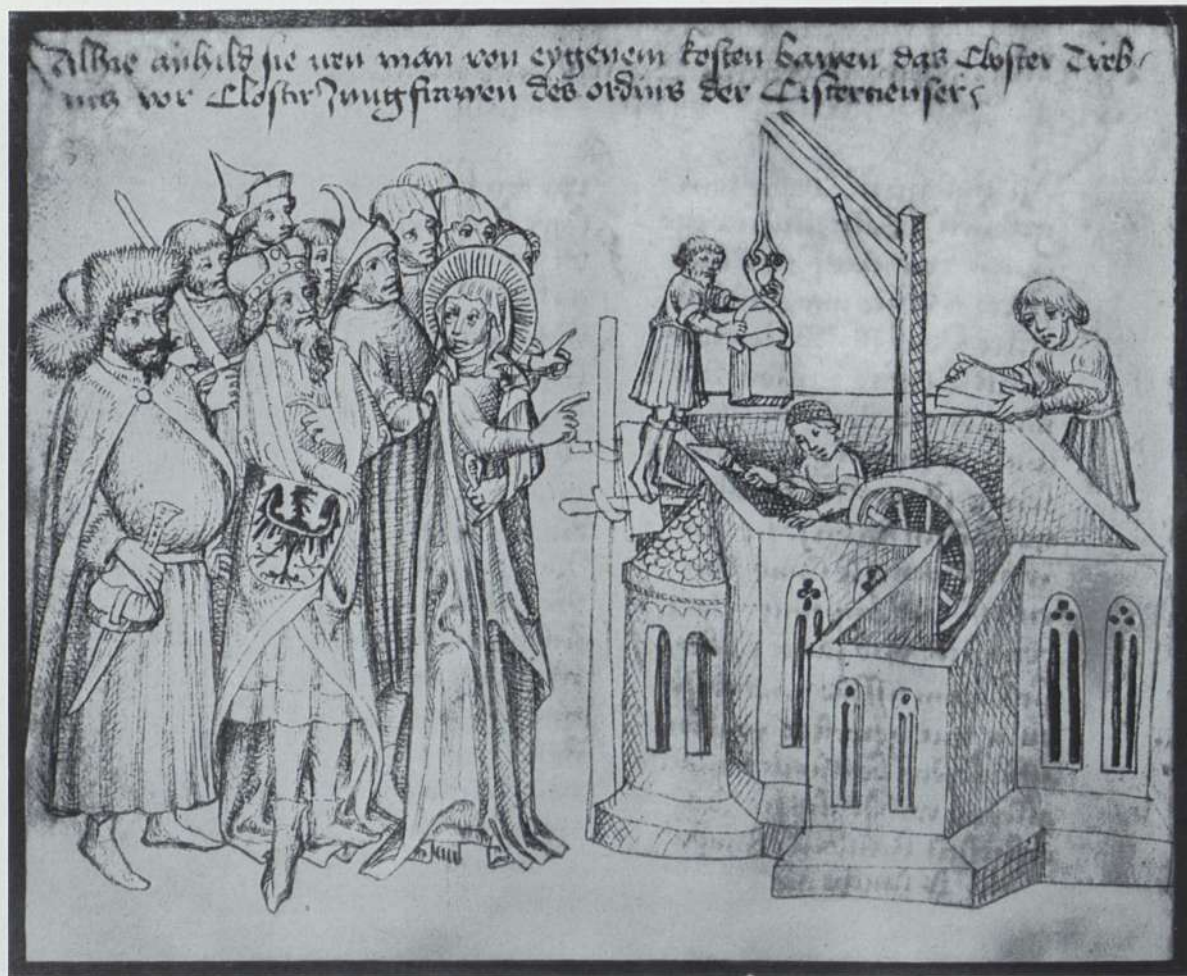 Alhie anhild sie iren man von eygenem kosten bawen das Closter Treb
nis vor Closter Jungfrawen des ordins der Cistercienser